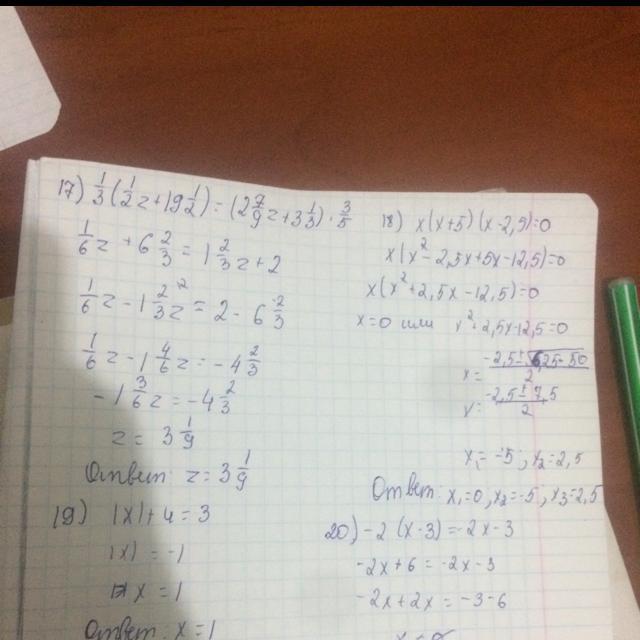 17) 1/3(1/2z+19 1/2)=(2 7/9z+3 1/3)·3/5
1/6z+6 2/3=1 2/3z+2
1/6z-1 2/3z=2-6 2/3
1/6z-1 4/6z=-4 2/3
-1 3/6z=-4 2/3
z=3 1/9
Ответ: z=3 1/9
18) x(x+5)(x-2,5)=0
x(x²-2,5x+5x-12,5)=0
x(x²+2,5x-12,5)=0
x=0 или x²+2,5x-12,5=0
x= -2,5±√6,25-50 / 2
x= -2,5±7,5 / 2
x₁=-5; x₂=2,5
Ответ: x₁=0, x₂=-5, x₃=2,5
19) |x|+4=3
|x|=-1
x=1
Ответ: x=1
20) -2(x-3)=-2x-3
-2x+6=-2x-3
-2x+2x=-3-6